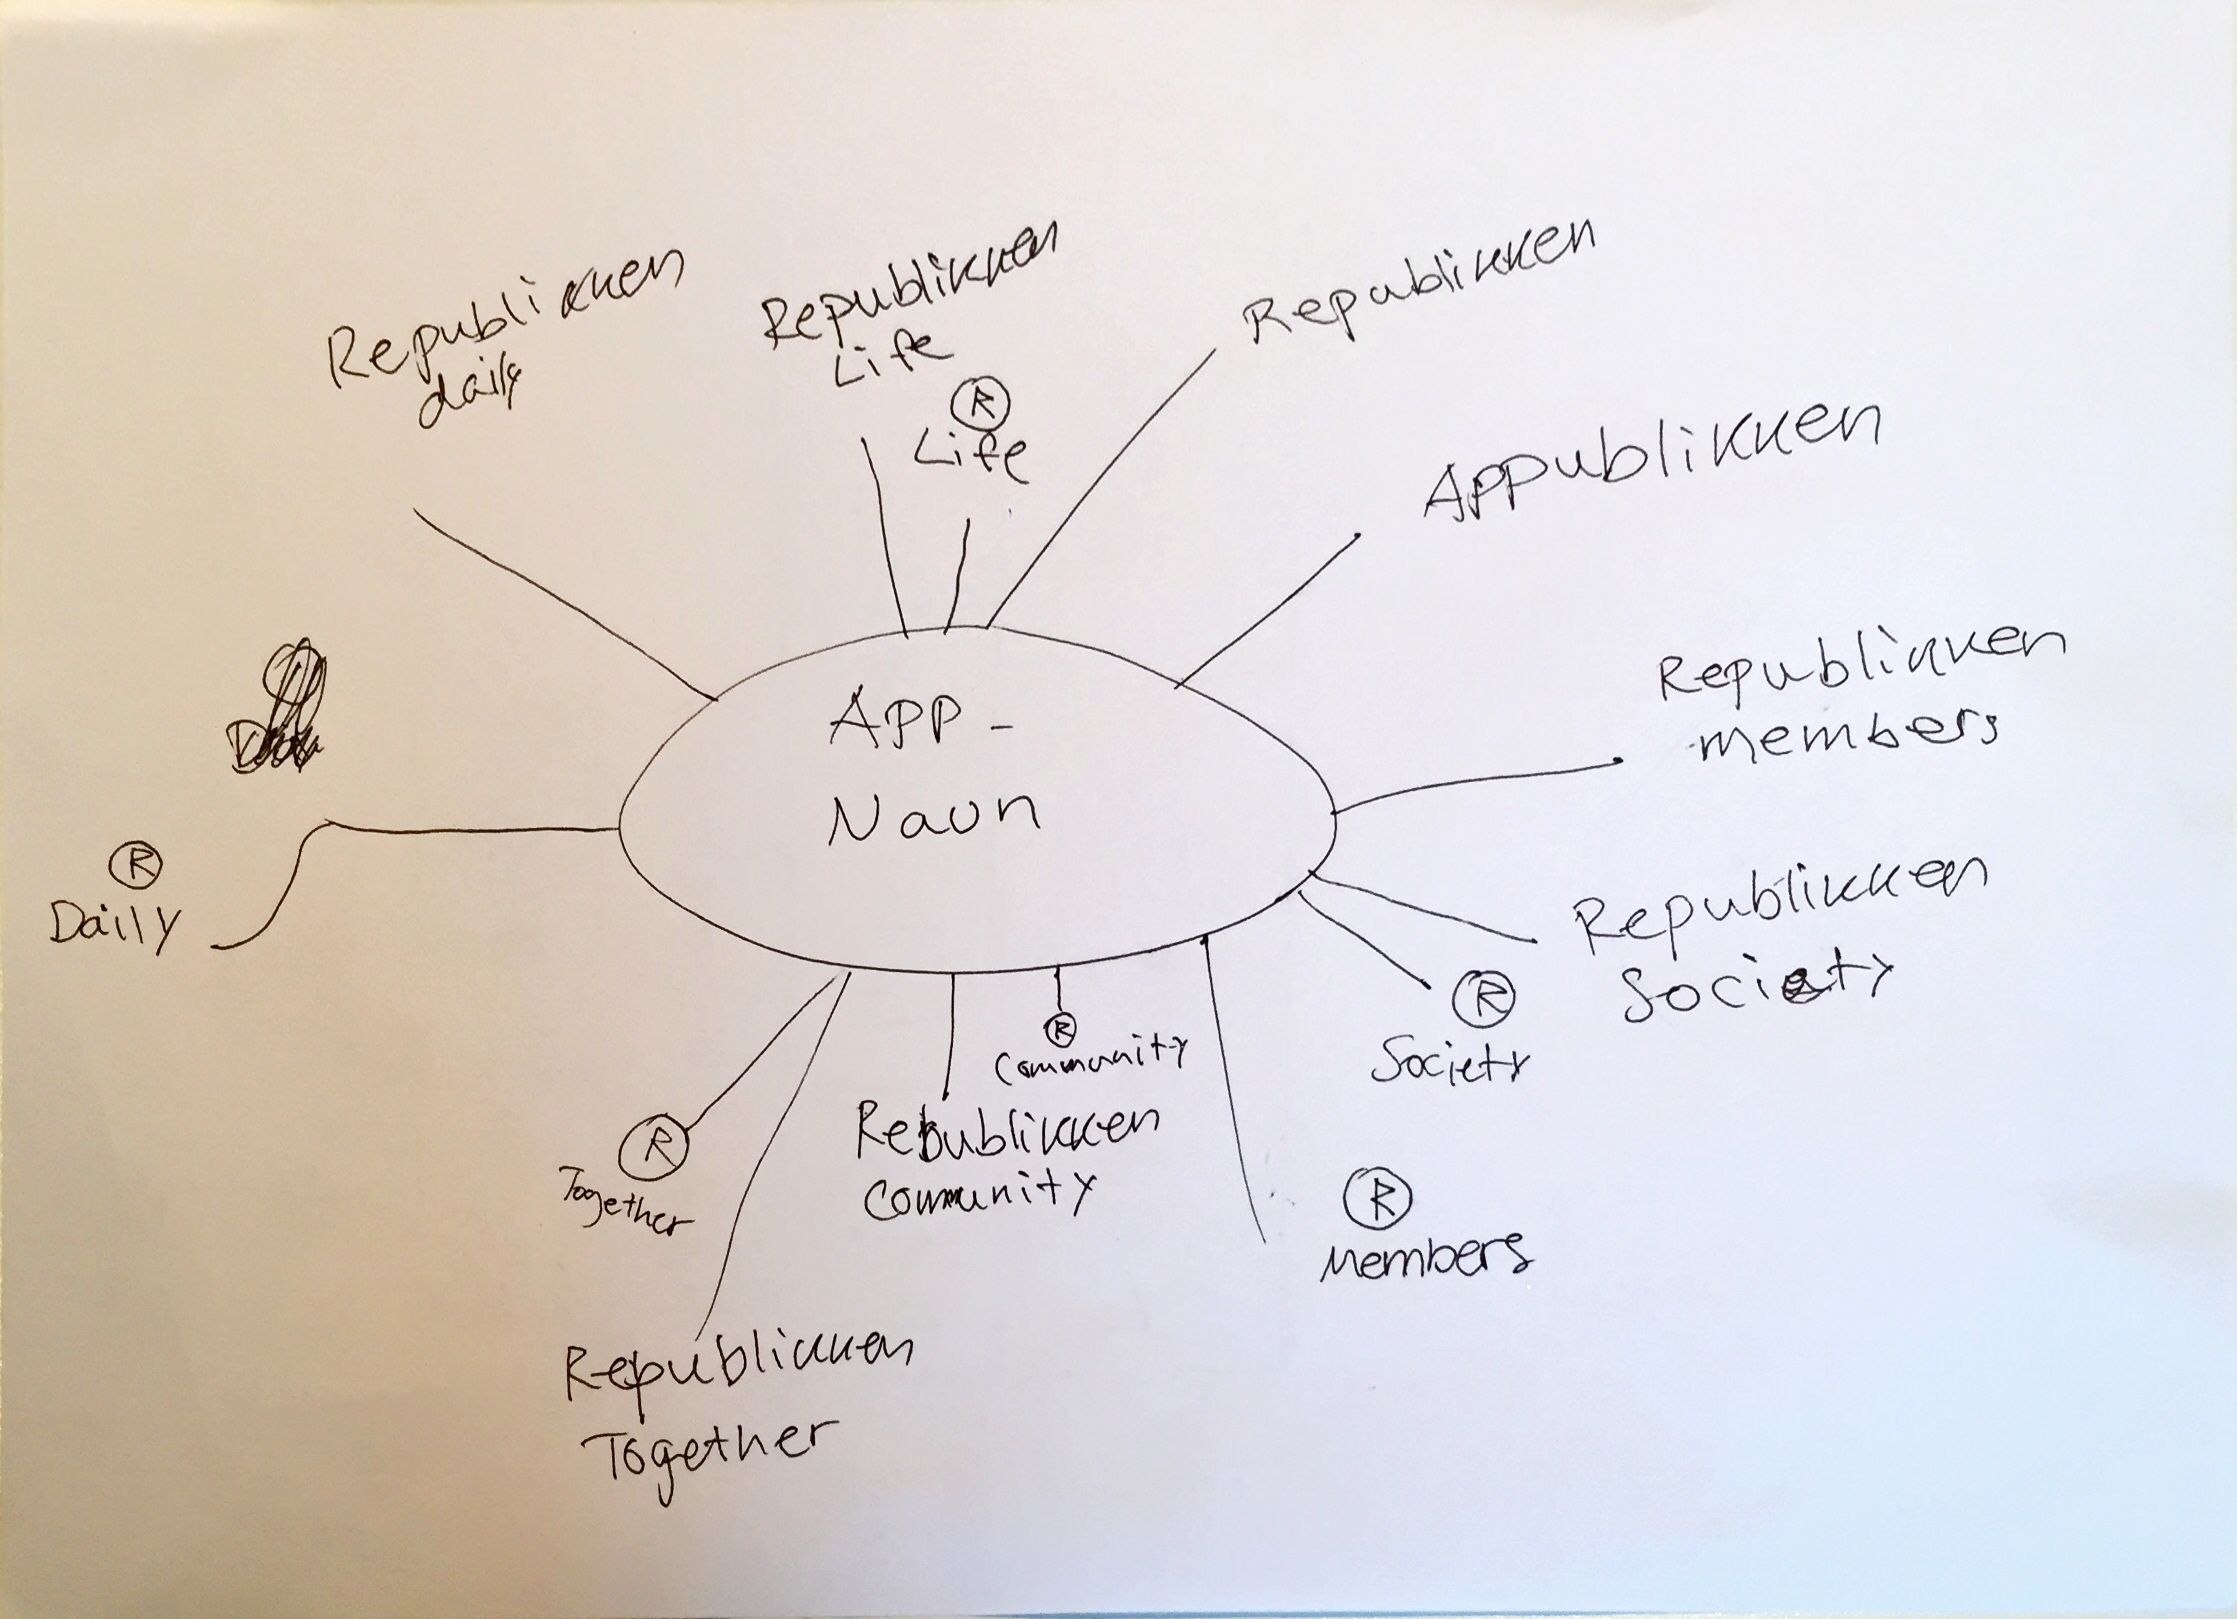 Republikken
daily
Republikken
Life
®
Life
Republikken
Appublikken
Republikken
members
Republikken
Society
®
Society
®
Members
®
Community
Republikken
Community
®
Together
Republikken
Together
®
Daily
APP-
Navn